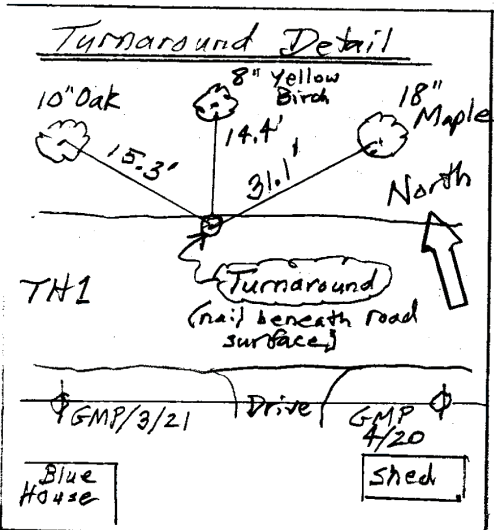 Turnaround Detail
10" Oak
8" Yellow
Birch
18"
Maple
15.3'
14.4'
31.1'
North
TH1
Turnaround
(nail beneath road
surface)
GMP/3/21
Drive
GMP
4/20
Blue
House
Shed